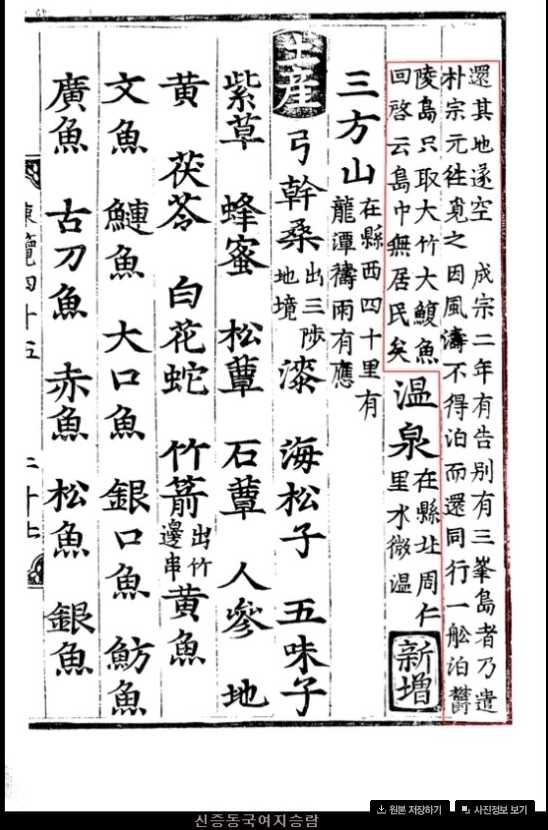 還其地遂空 成宗二年有告别有三峯島者乃遣
朴宗元徃覓之因風濤不得泊而還同行一舩泊欝
陵島只取大竹大鰒魚
回啓云島中無居民矣
温泉
在縣北周仁
里水微温
新增
三方山
在縣西四十里有
龍潭禱雨有應
土産
弓幹桑
出三陟
地境
漆 海松子 五味子
紫草 蜂蜜 松蕈 石蕈 人參 地
黄 茯苓 白花蛇 竹箭
出竹
邊串
黄魚
文魚 鰱魚 大口魚 銀口魚 魴魚
廣魚 古刀魚 赤魚 松魚 銀魚
覽四十五
원본 저장하기
사진정보 보기
신증동국여지승람